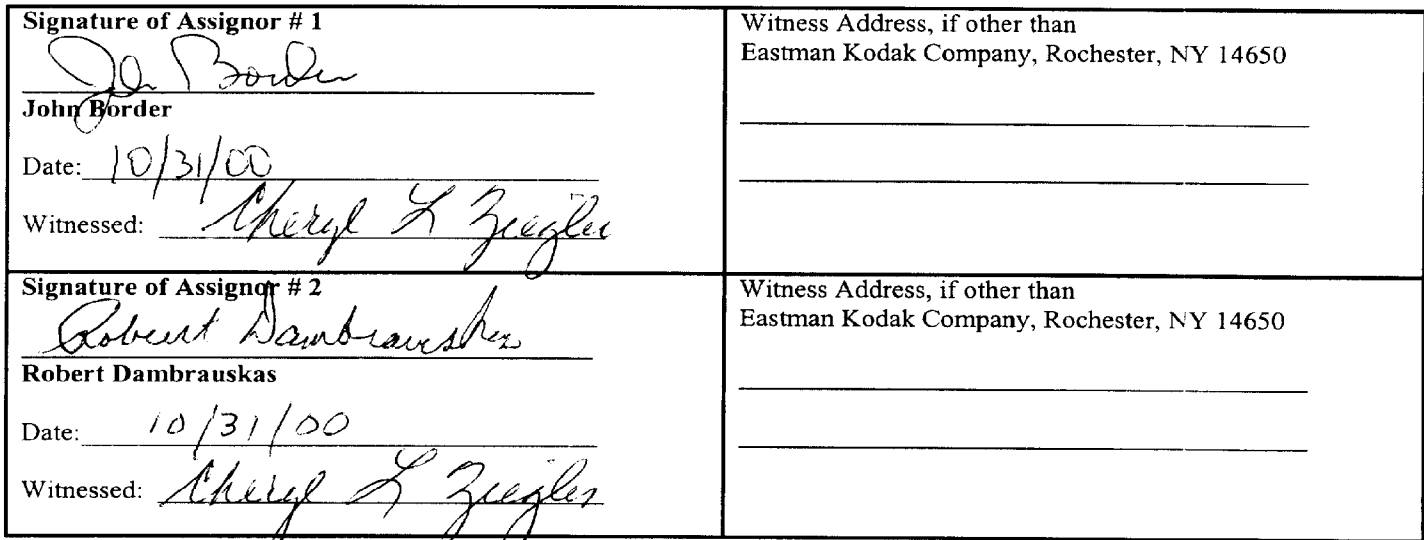 Signature of Assignor # 1
John Border
John Border
Date: 10/31/00
Witnessed: Cheryl L Ziegler
Witness Address, if other than
Eastman Kodak Company, Rochester, NY 14650
Signature of Assignor # 2
Robert Dambrauskas
Robert Dambrauskas
Date: 10/31/00
Witnessed: Cheryl L Ziegler
Witness Address, if other than
Eastman Kodak Company, Rochester, NY 14650